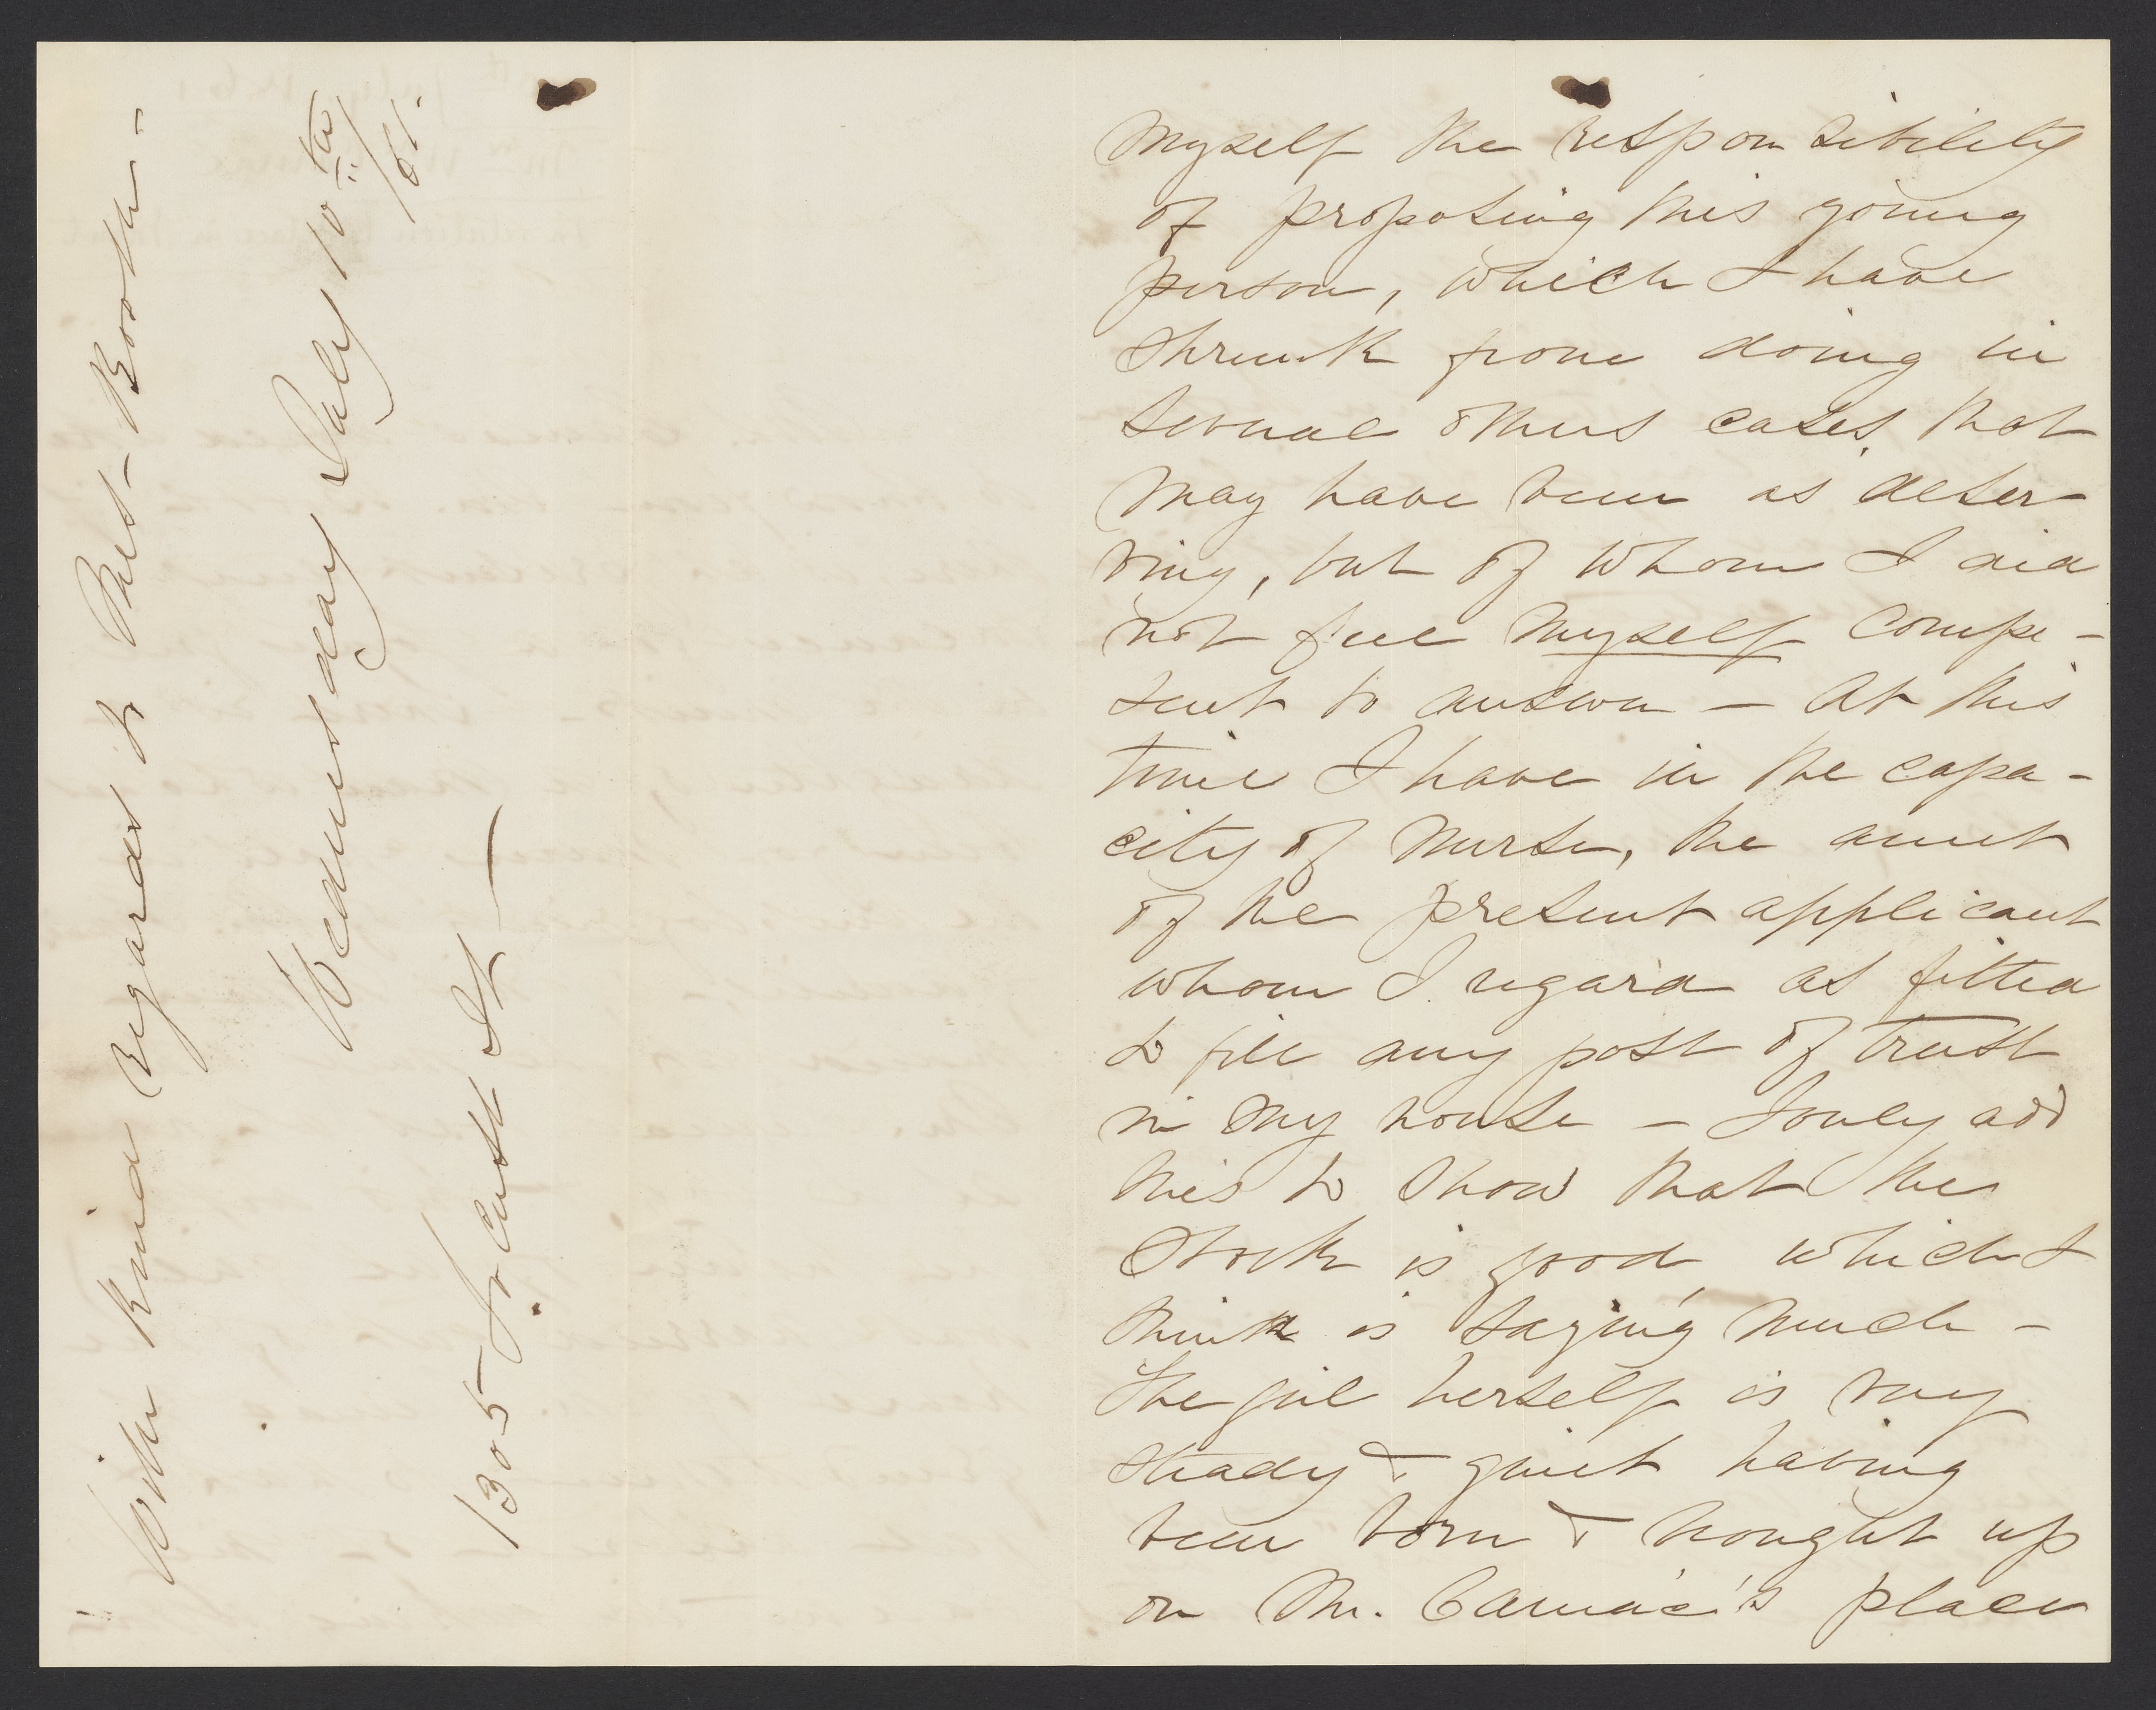 myself the responsibility
of proposing this young
person, which I have
shrunk from doing in
several others cases, that
may have been as deser-
ving, but of whom I did
not feel myself compe-
tent to answer — At this
time I have in the capa-
city of Nurse, the aunt
of the present applicant
whom I regard as fitted
to fill any post of trust
in my house — I only add
this to show that the
Stock is good, which I
think is saying much —
The girl herself is very
steady & quiet having
been born & brought up
on Mr. Camac's place
With kind regards to Booth —
Wednesday July 10th / 61.
1305 Locust St —